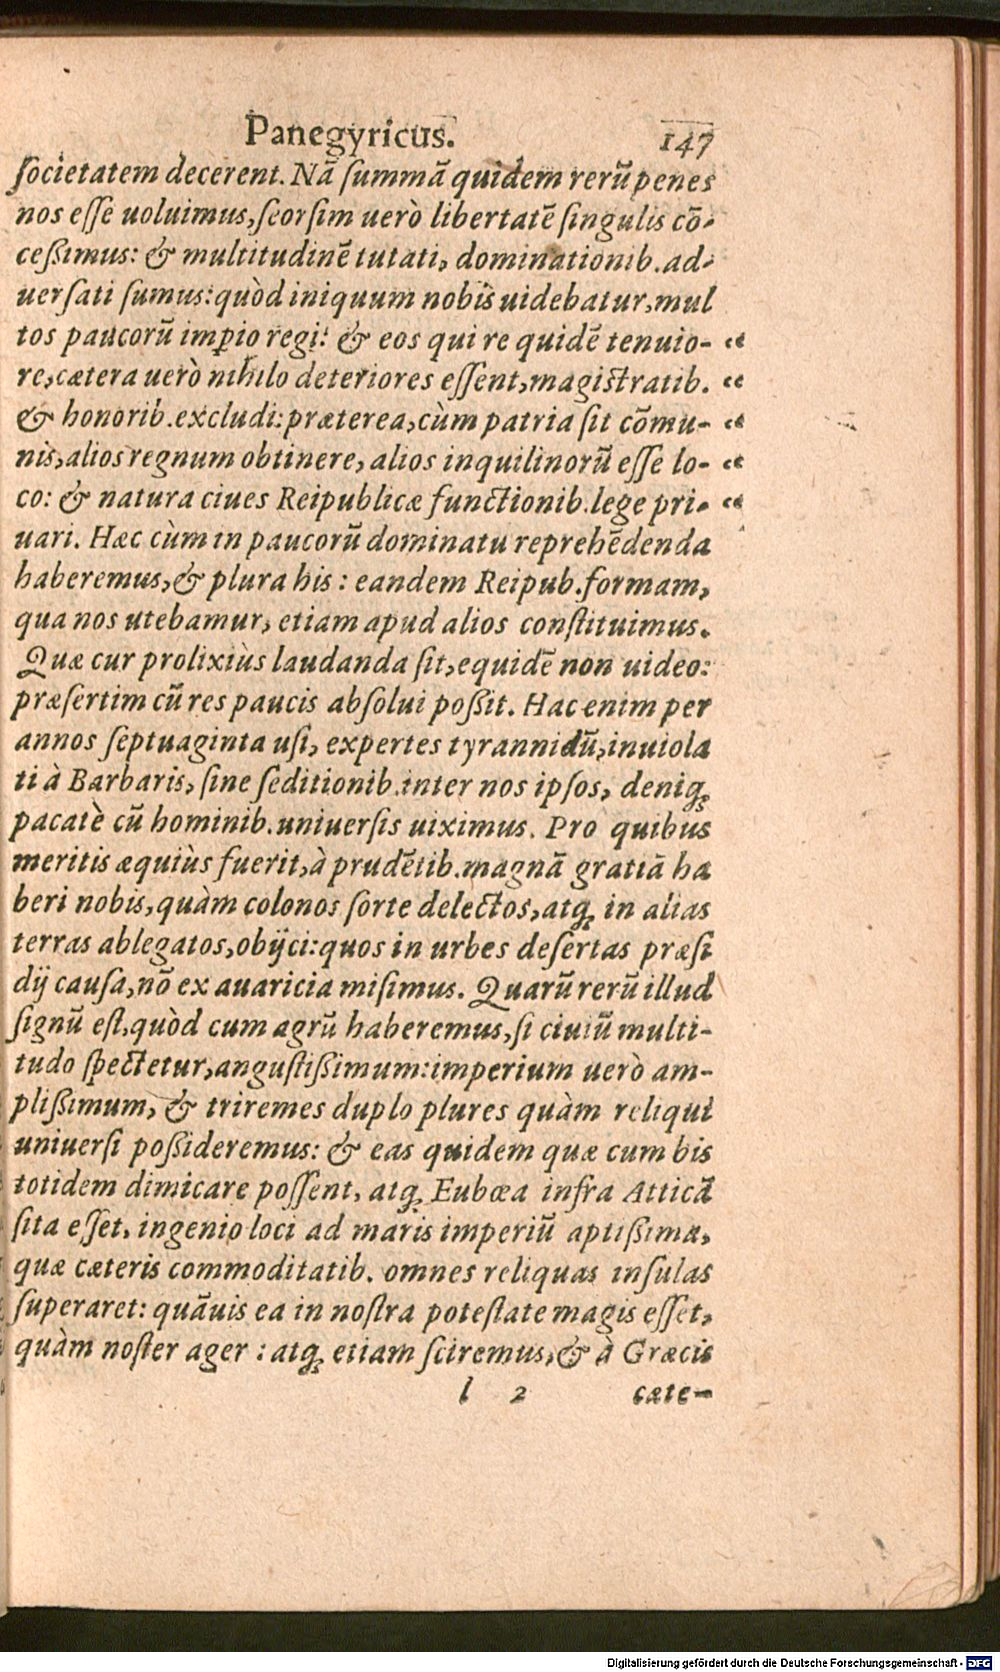 Panegyricus. 147
ſocietatem decerent. Nā ſummā quidem rerū penes
nos eſſe uoluimus, ſeorſim uerò libertatē ſingulis cō-
ceßimus: & multitudinē tutati, dominationib. ad-
uerſati ſumus: quòd iniquum nobis uidebatur, mul
tos paucorū imperio regi: & eos qui re quidē tenuio- “
re, cætera uerò nihilo deteriores eſſent, magiſtratib. “
& honorib. excludi: præterea, cùm patria ſit cōmu- “
nis, alios regnum obtinere, alios inquilinorū eſſe lo- “
co: & natura ciues Reipublicæ functionib. lege pri- “
uari. Hæc cùm in paucorū dominatu reprehēdenda
haberemus, & plura his: eandem Reipub. formam,
qua nos utebamur, etiam apud alios conſtituimus.
Quæ cur prolixiùs laudanda ſit, equidē non uideo:
præſertim cū res paucis abſolui poßit. Hac enim per
annos ſeptuaginta uſi, expertes tyrannidū, inuiola
ti à Barbaris, ſine ſeditionib. inter nos ipſos, deniq;
pacatè cū hominib. uniuerſis uiximus. Pro quibus
meritis æquiùs fuerit, à prudētib. magnā gratiā ha
beri nobis, quàm colonos ſorte delectos, atq; in alias
terras ablegatos, obijci: quos in urbes deſertas præſi
dij cauſa, nō ex auaricia miſimus. Quarū rerū illud
ſignū eſt, quòd cum agrū haberemus, ſi ciuiū multi-
tudo ſpectetur, anguſtißimum: imperium uerò am-
plißimum, & triremes duplo plures quàm reliqui
uniuerſi poßideremus: & eas quidem quæ cum bis
totidem dimicare poſſent, atq; Eubœa infra Atticā
ſita eſſet, ingenio loci ad maris imperiū aptißima,
quæ cæteris commoditatib. omnes reliquas inſulas
ſuperaret: quāuis ea in noſtra poteſtate magis eſſet,
quàm noſter ager: atq; etiam ſciremus, & à Græcis
l 2 cæte-
Digitalisierung gefördert durch die Deutsche Forschungsgemeinschaft - DFG